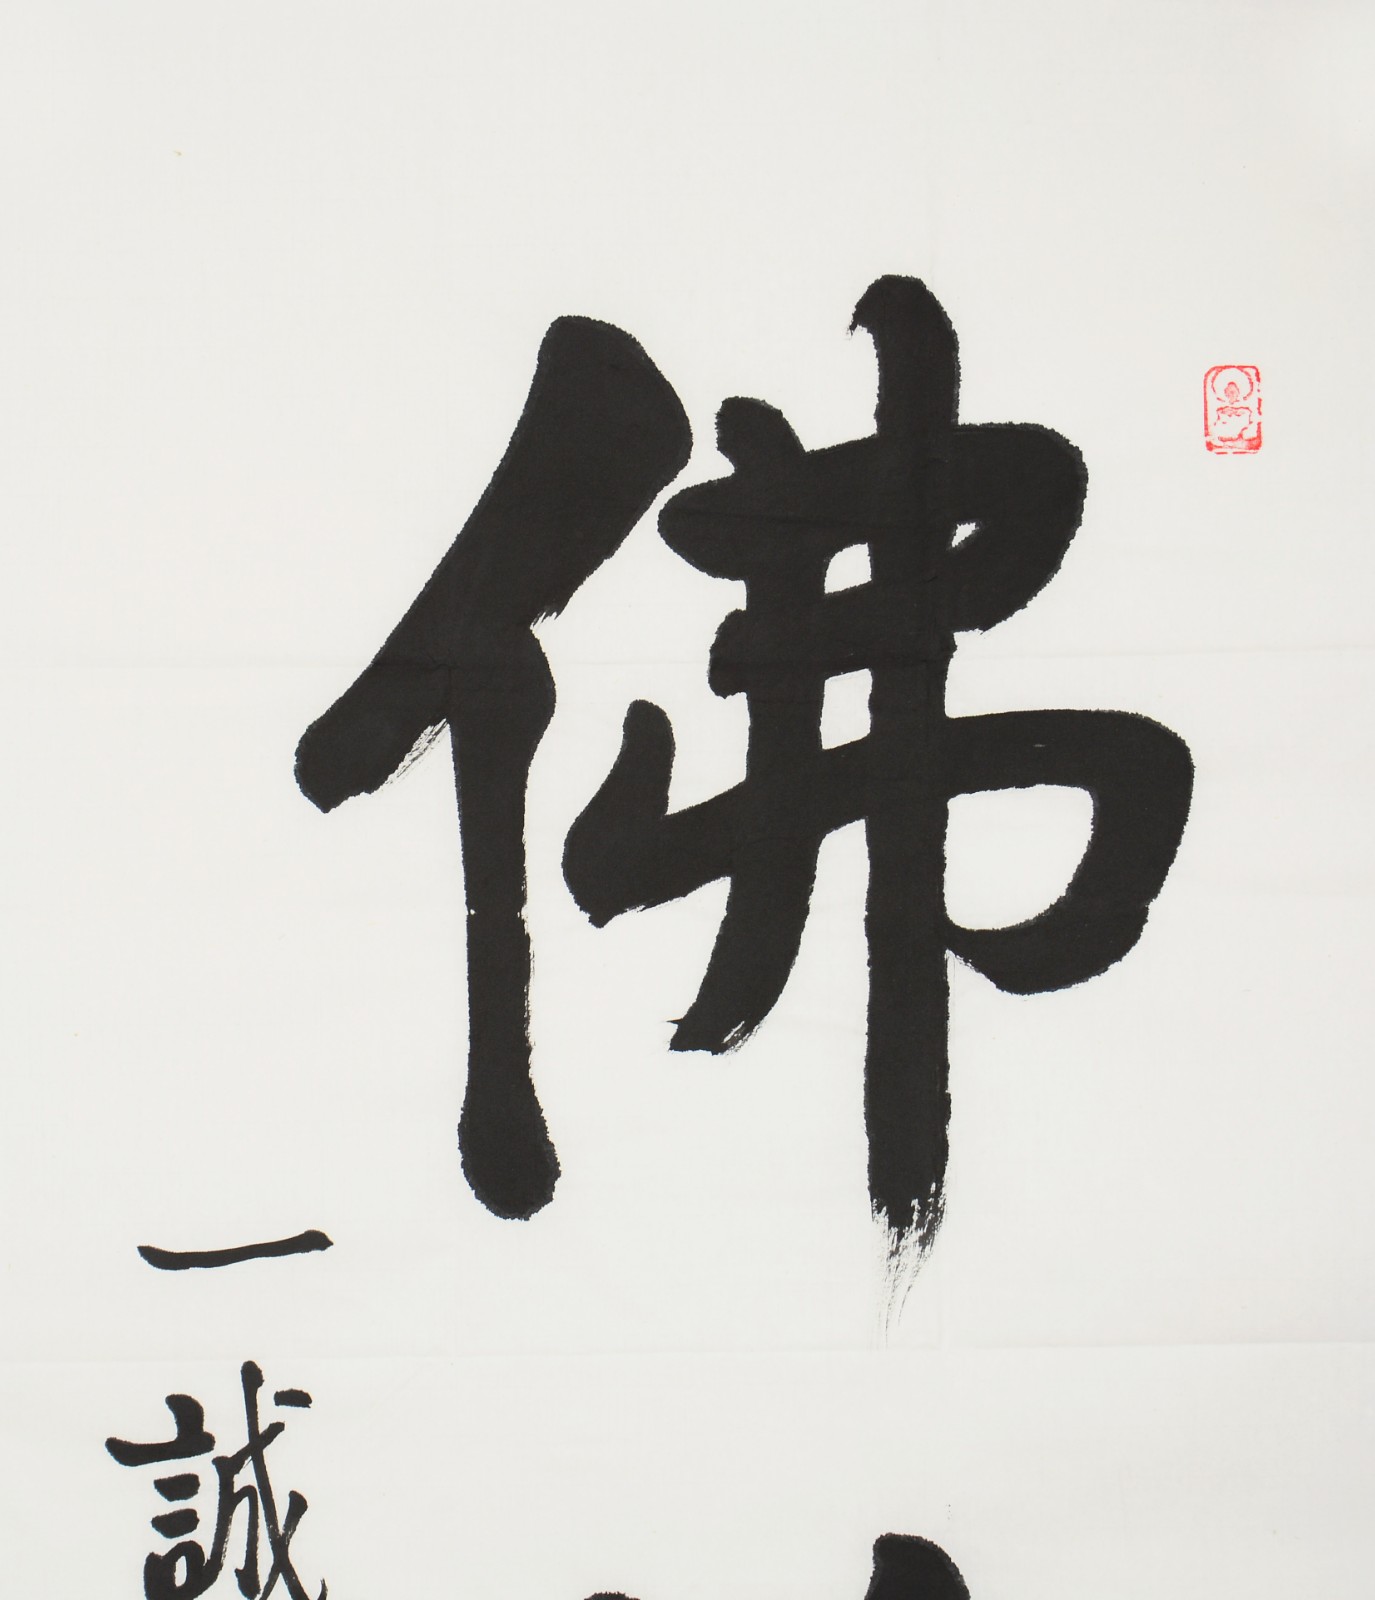 佛
一誠